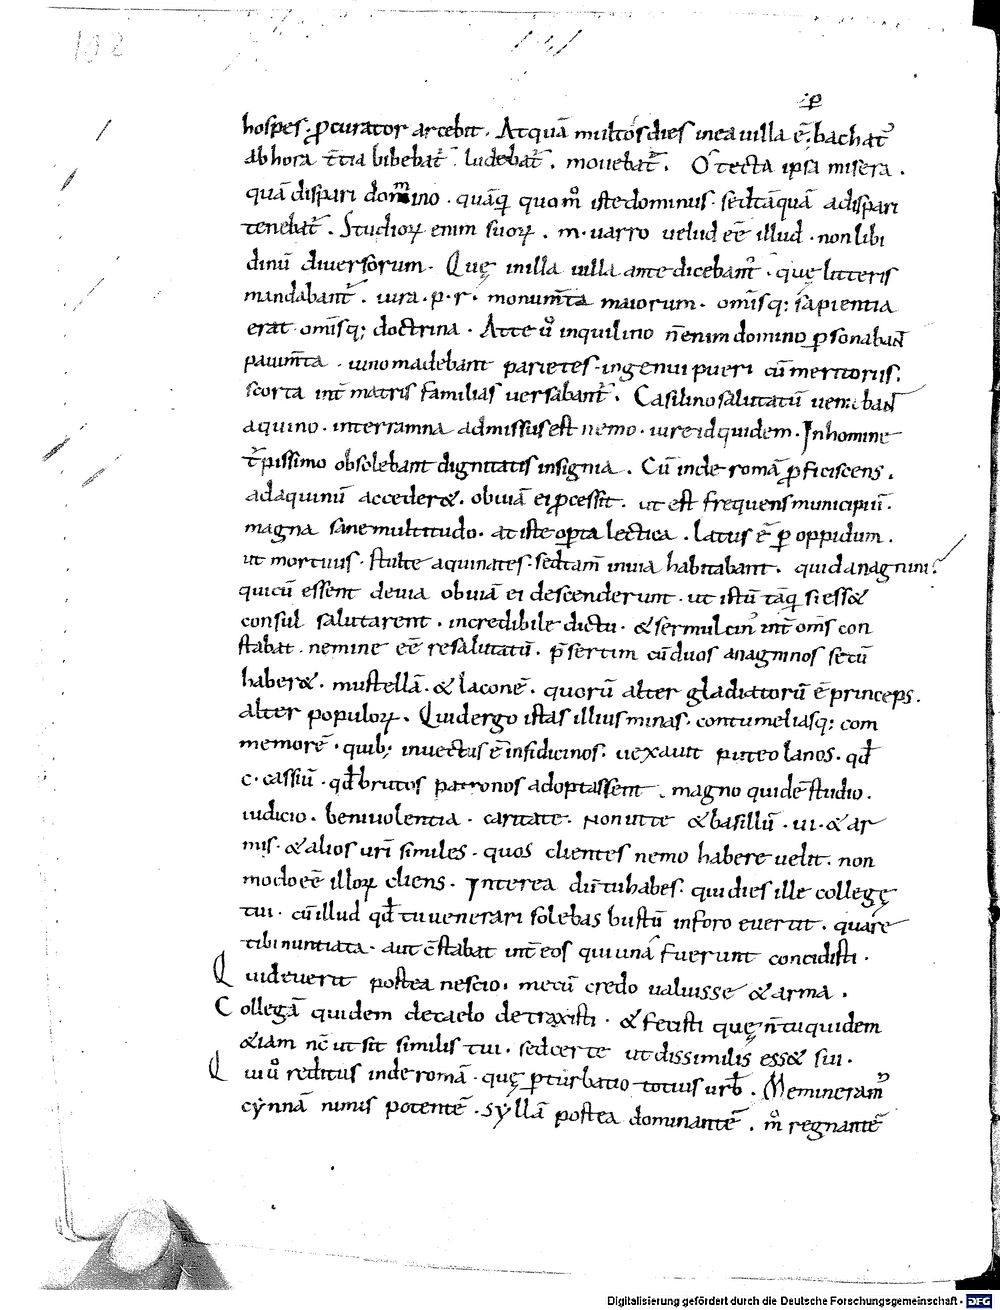 108
hospes. ꝓcurator arcebit. Atquā multos dies in ea uilla ē; bachat᷑
ab hora t̄tia bibebat᷑. ludebat᷑. mouebat᷑. O tecta ipsa misera.
quā dispari domino. quāq̄ quom̊ iste dominus. sed tāquā a dispari
tenebat᷑. Studioꝝ enim suoꝝ. m. uarro uelud eē illud. non libi
dinū diuersorum. Quę in illa uilla ante dicebant᷑. quę litteris
mandabant᷑. iura. p. r. monum̄ta maiorum. omisq; sapientia
erat omisq; doctrina. At te ů inquilino n̄ enim domino ꝑsonabant
pauim̄ta. uino madebant parietes. ingenui pueri cū meritoriis.
scorta int̄ matris familias uersabant᷑. Casilino salutatū ueniebant
aquino. interramna admissus est nemo. iure id quidem. In homine
t᷑pissimo obsolebant dignitatis insignia. Cū inde romā ꝓficiscens.
ad aquinū accederet. obuiā ei ꝓcessit. ut est frequens municipiū.
magna sane multitudo. at iste opta lectica. latus ē ꝑ oppidum.
ut mortuus. stulte aquinates. sed tam̄ in uia habitabant. quid anagnini?
qui cū essent deuia obuiā ei descenderunt. ut istū tāq̄ si ess&
consul salutarent. incredibile dictu. & int̄ om̄s con
stabat. nemine eē resalutatū. p̄sertim cū duos anagninos secū
haber&. mustellā. & laconē. quorū alter gladiatorū ē princeps.
alter populoꝝ. Quid ergo istas illius minas. contumeliasq; com
memorē. quib; inuectus ē in fidicinos. uexauit puteolanos. qđ
c. cassiū. qđ brutos patronos adoptassent. magno quidē studio.
iudicio. beniuolentia. caritate. non ut te & basillū. ui. & ar
mis. & alios uri similes. quos clientes nemo habere uelit. non
modo eē illoꝝ cliens. Interea dū tu habes. qui dies ille collegę
tui. cū illud qđ tu uenerari solebas bustū in foro euertit. quare
tibi nuntiata. aut c̄stabat int̄ eos qui unā fuerunt concidisti.
Quid euerit postea nescio. mecū credo ualuisse & arma.
Collegā quidem de caelo detraxisti. & fecisti quę n̄ tu quidem
&iam nc̄ ut sit similis tui. sed certe ut dissimilis ess& sui.
Qui ů reditus inde romā. quę ꝑturbatio totius urb̄. Memineram᷑
cẏnnā nimis potentē. sẏllā postea dominantē. m̊ regnantē
Digitalisierung gefördert durch die Deutsche Forschungsgemeinschaft - DFG